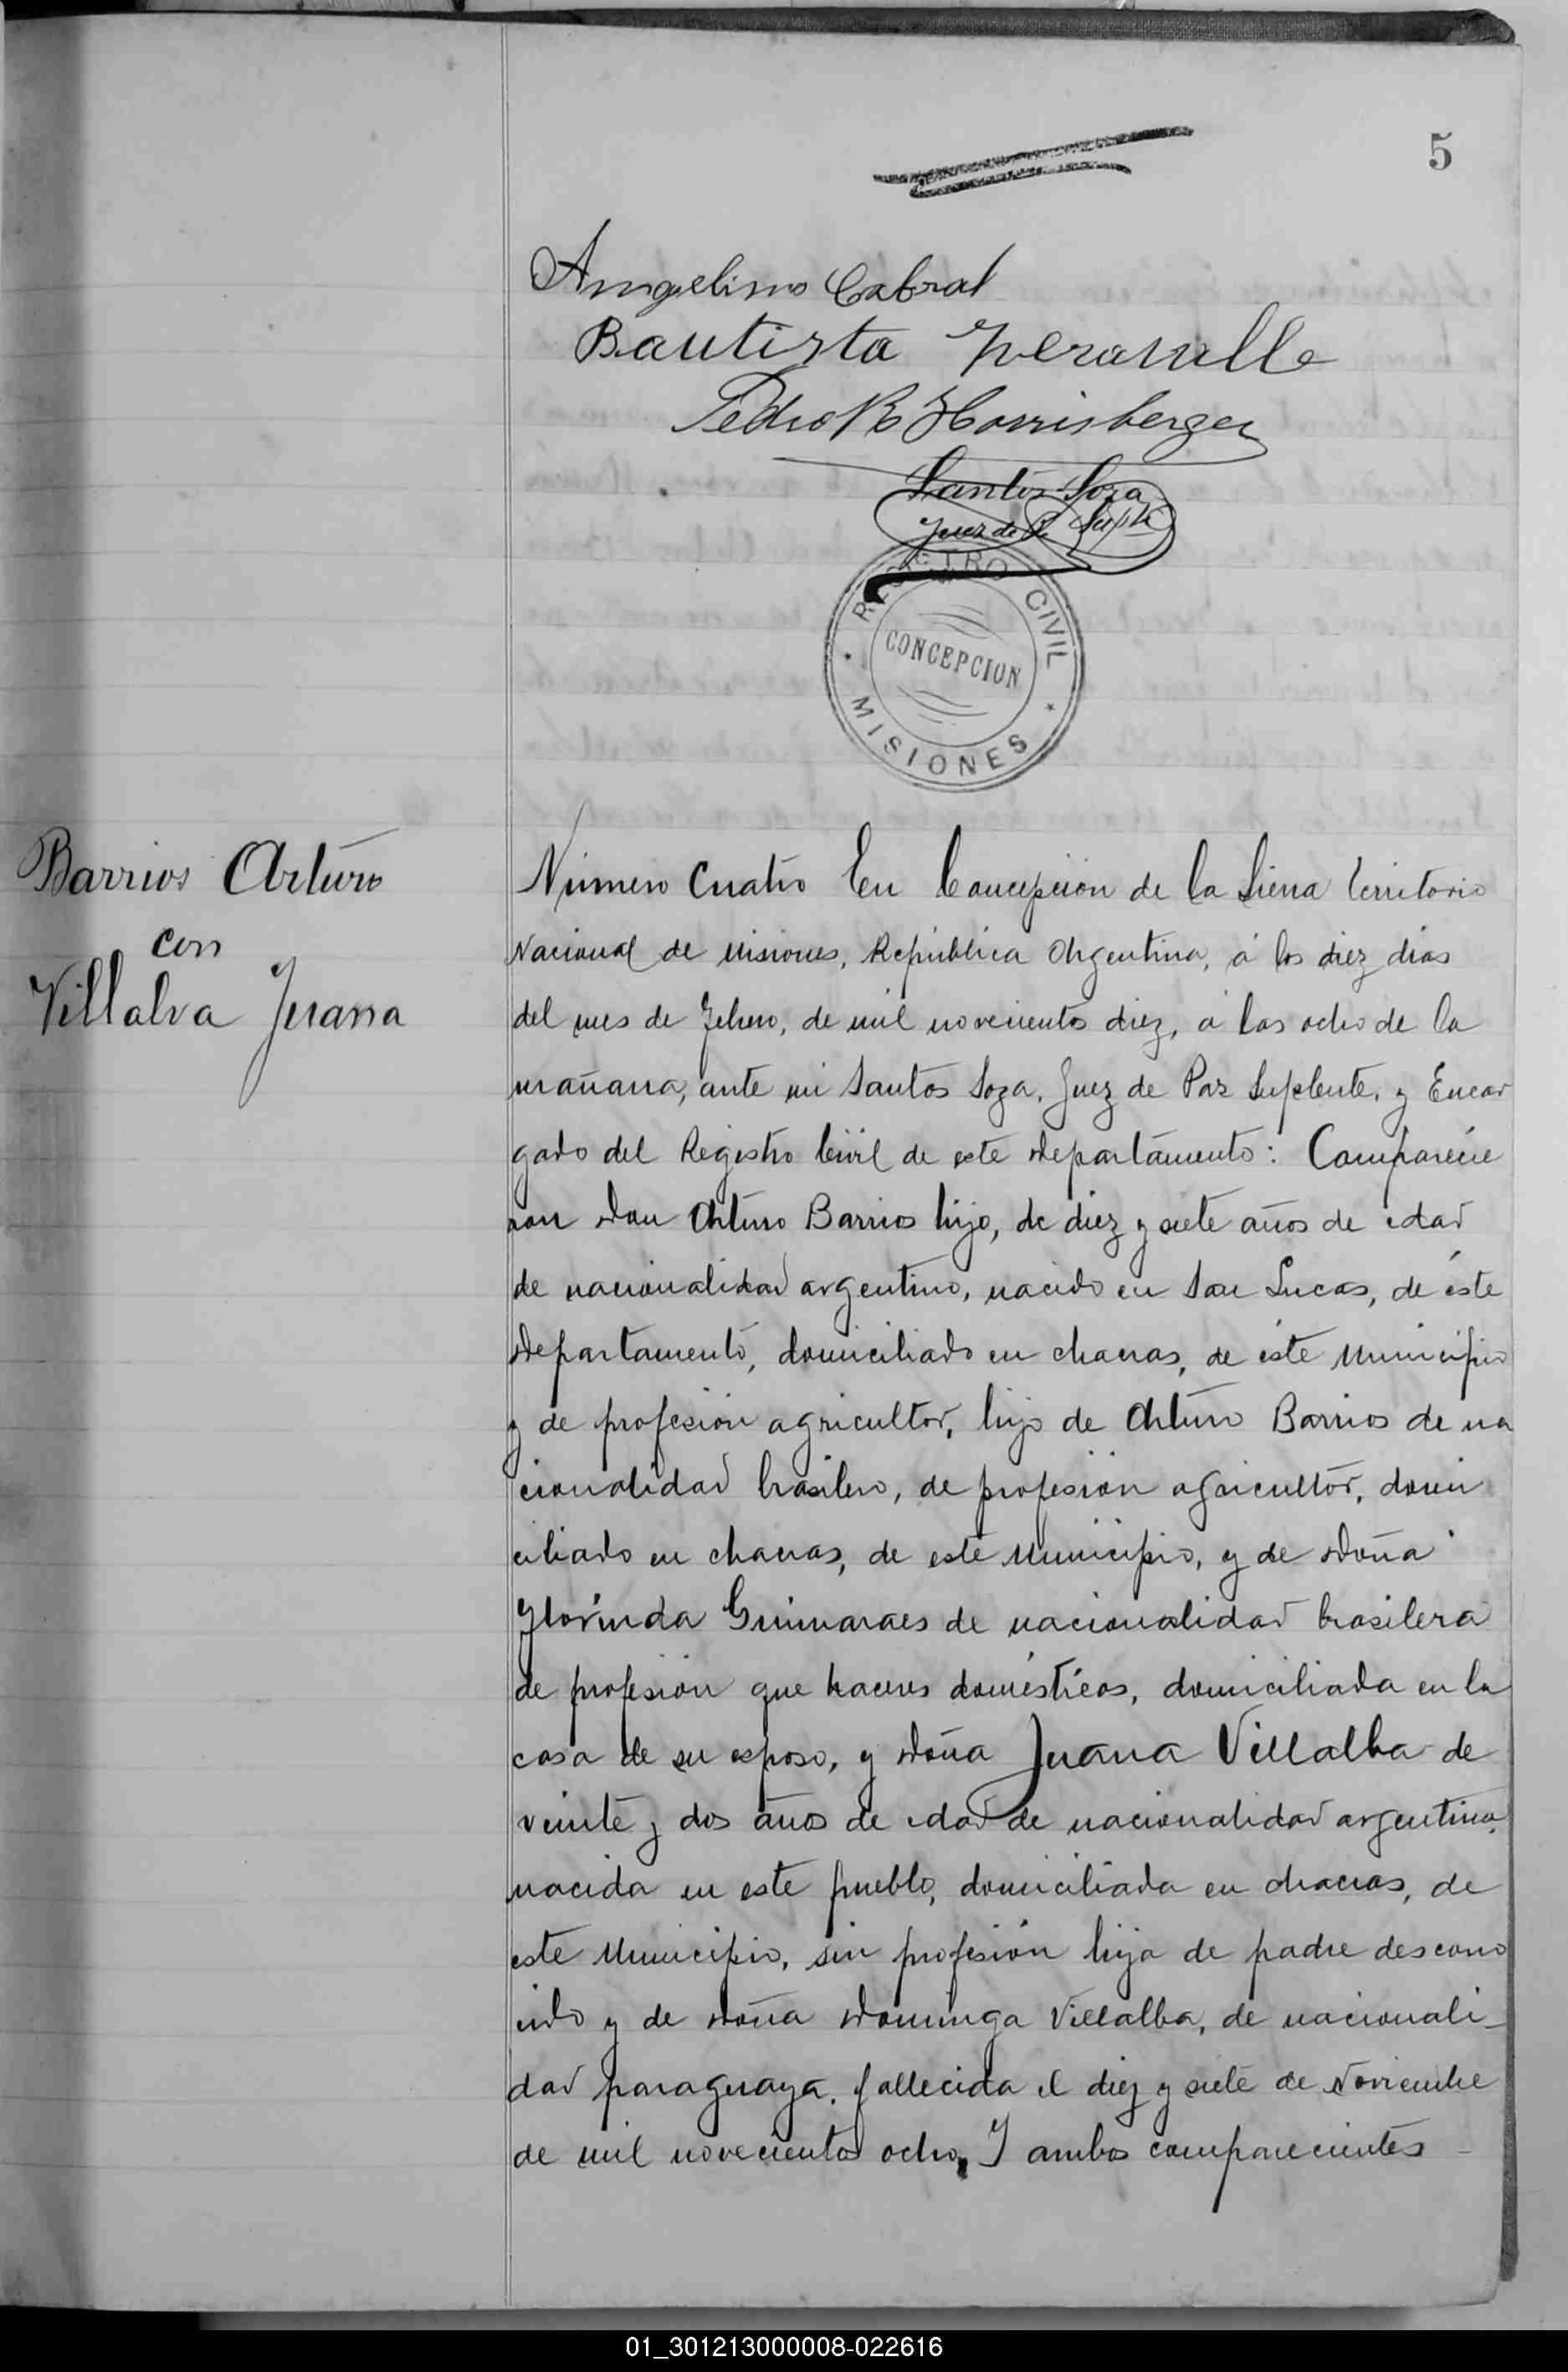 5
Angelino Cabral
Bautista
Pedro B Horrisberger
Santos Soza
Juez de P. Suplte
REGISTRO CIVIL
CONCEPCION
MISIONES
Barrios Arturo
con
Villalva Juana
Número Cuatro En Concepción de la Sierra territorio
Nacional de Misiones, República Argentina, á los diez dias
del mes de Febrero, de mil novecientos diez, á las ocho de la
mañana, ante mi Santos Soza, Juez de Paz Suplente, y Encar
gado del Registro Civil de este Departamento: Comparecie
ron Don Arturo Barrios hijo, de diez y siete años de edad
de nacionalidad argentino, nacido en San Lucas, de éste
Departamento, domiciliado en chacras, de éste Municipio
y de profesión agricultor, hijo de Arturo Barrios de na
cionalidad brasilero, de profesión agricultor, domi
ciliado en chacras, de este Municipio, y de Doña
Florinda Guimaraes de nacionalidad brasilera
de profesión que haceres domésticos, domiciliada en la
casa de su esposo, y Doña Juana Villalba de
veinte y dos años de edad de nacionalidad argentina,
nacida en este pueblo, domiciliada en chacras, de
este Municipio, sin profesión hija de padre descono
cido y de Doña Dominga Villalba, de nacionali-
dad paraguaya, fallecida el diez y siete de Noviembre
de mil novecientos ocho, Y ambos comparecientes
01_301213000008-022616